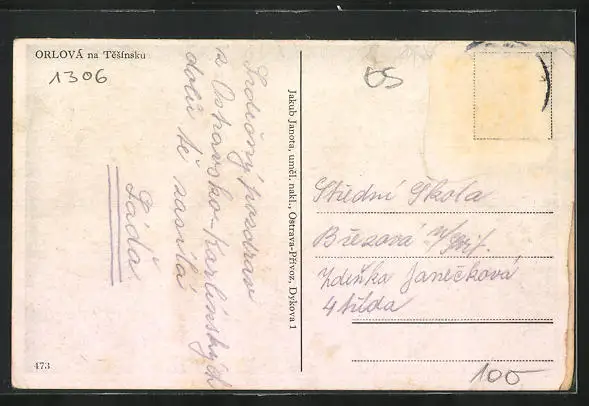 ORLOVÁ na Těšínsku
1306
Srdečný pozdrav
z Ostravsko-karvinských
dolů ti zasílá
Láďa
Jakub Janota, uměl. nakl., Ostrava-Přívoz, Dykova 1
Střední Škola
Březová
Zdeňka Janečková
4 třída
473
100